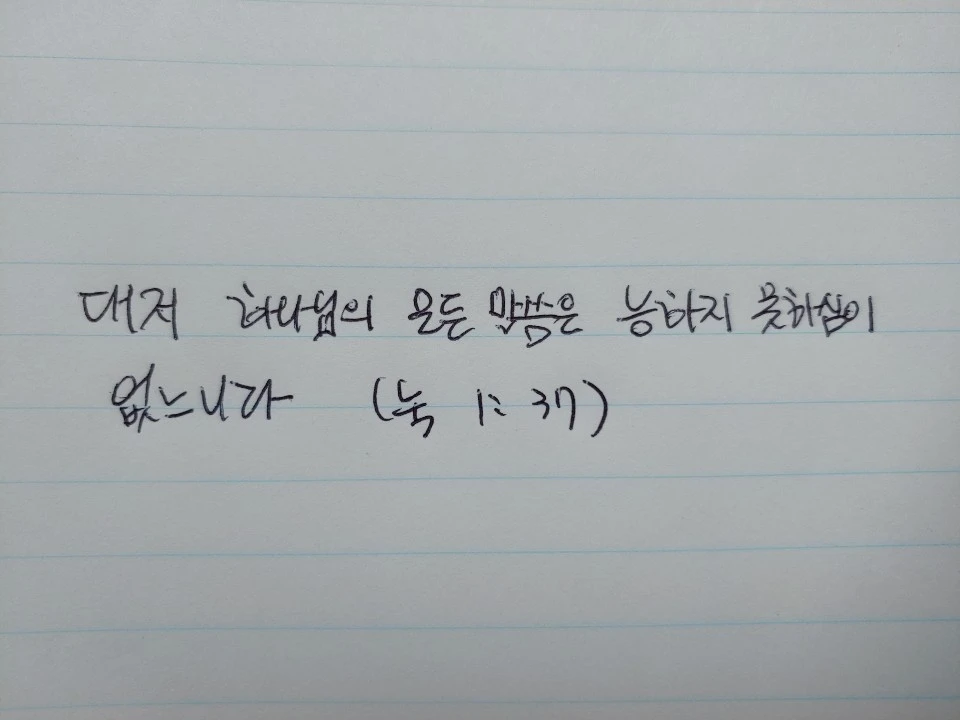 대저 하나님의 모든 말씀은 능하지 못하심이
없느니라 (눅 1:37)